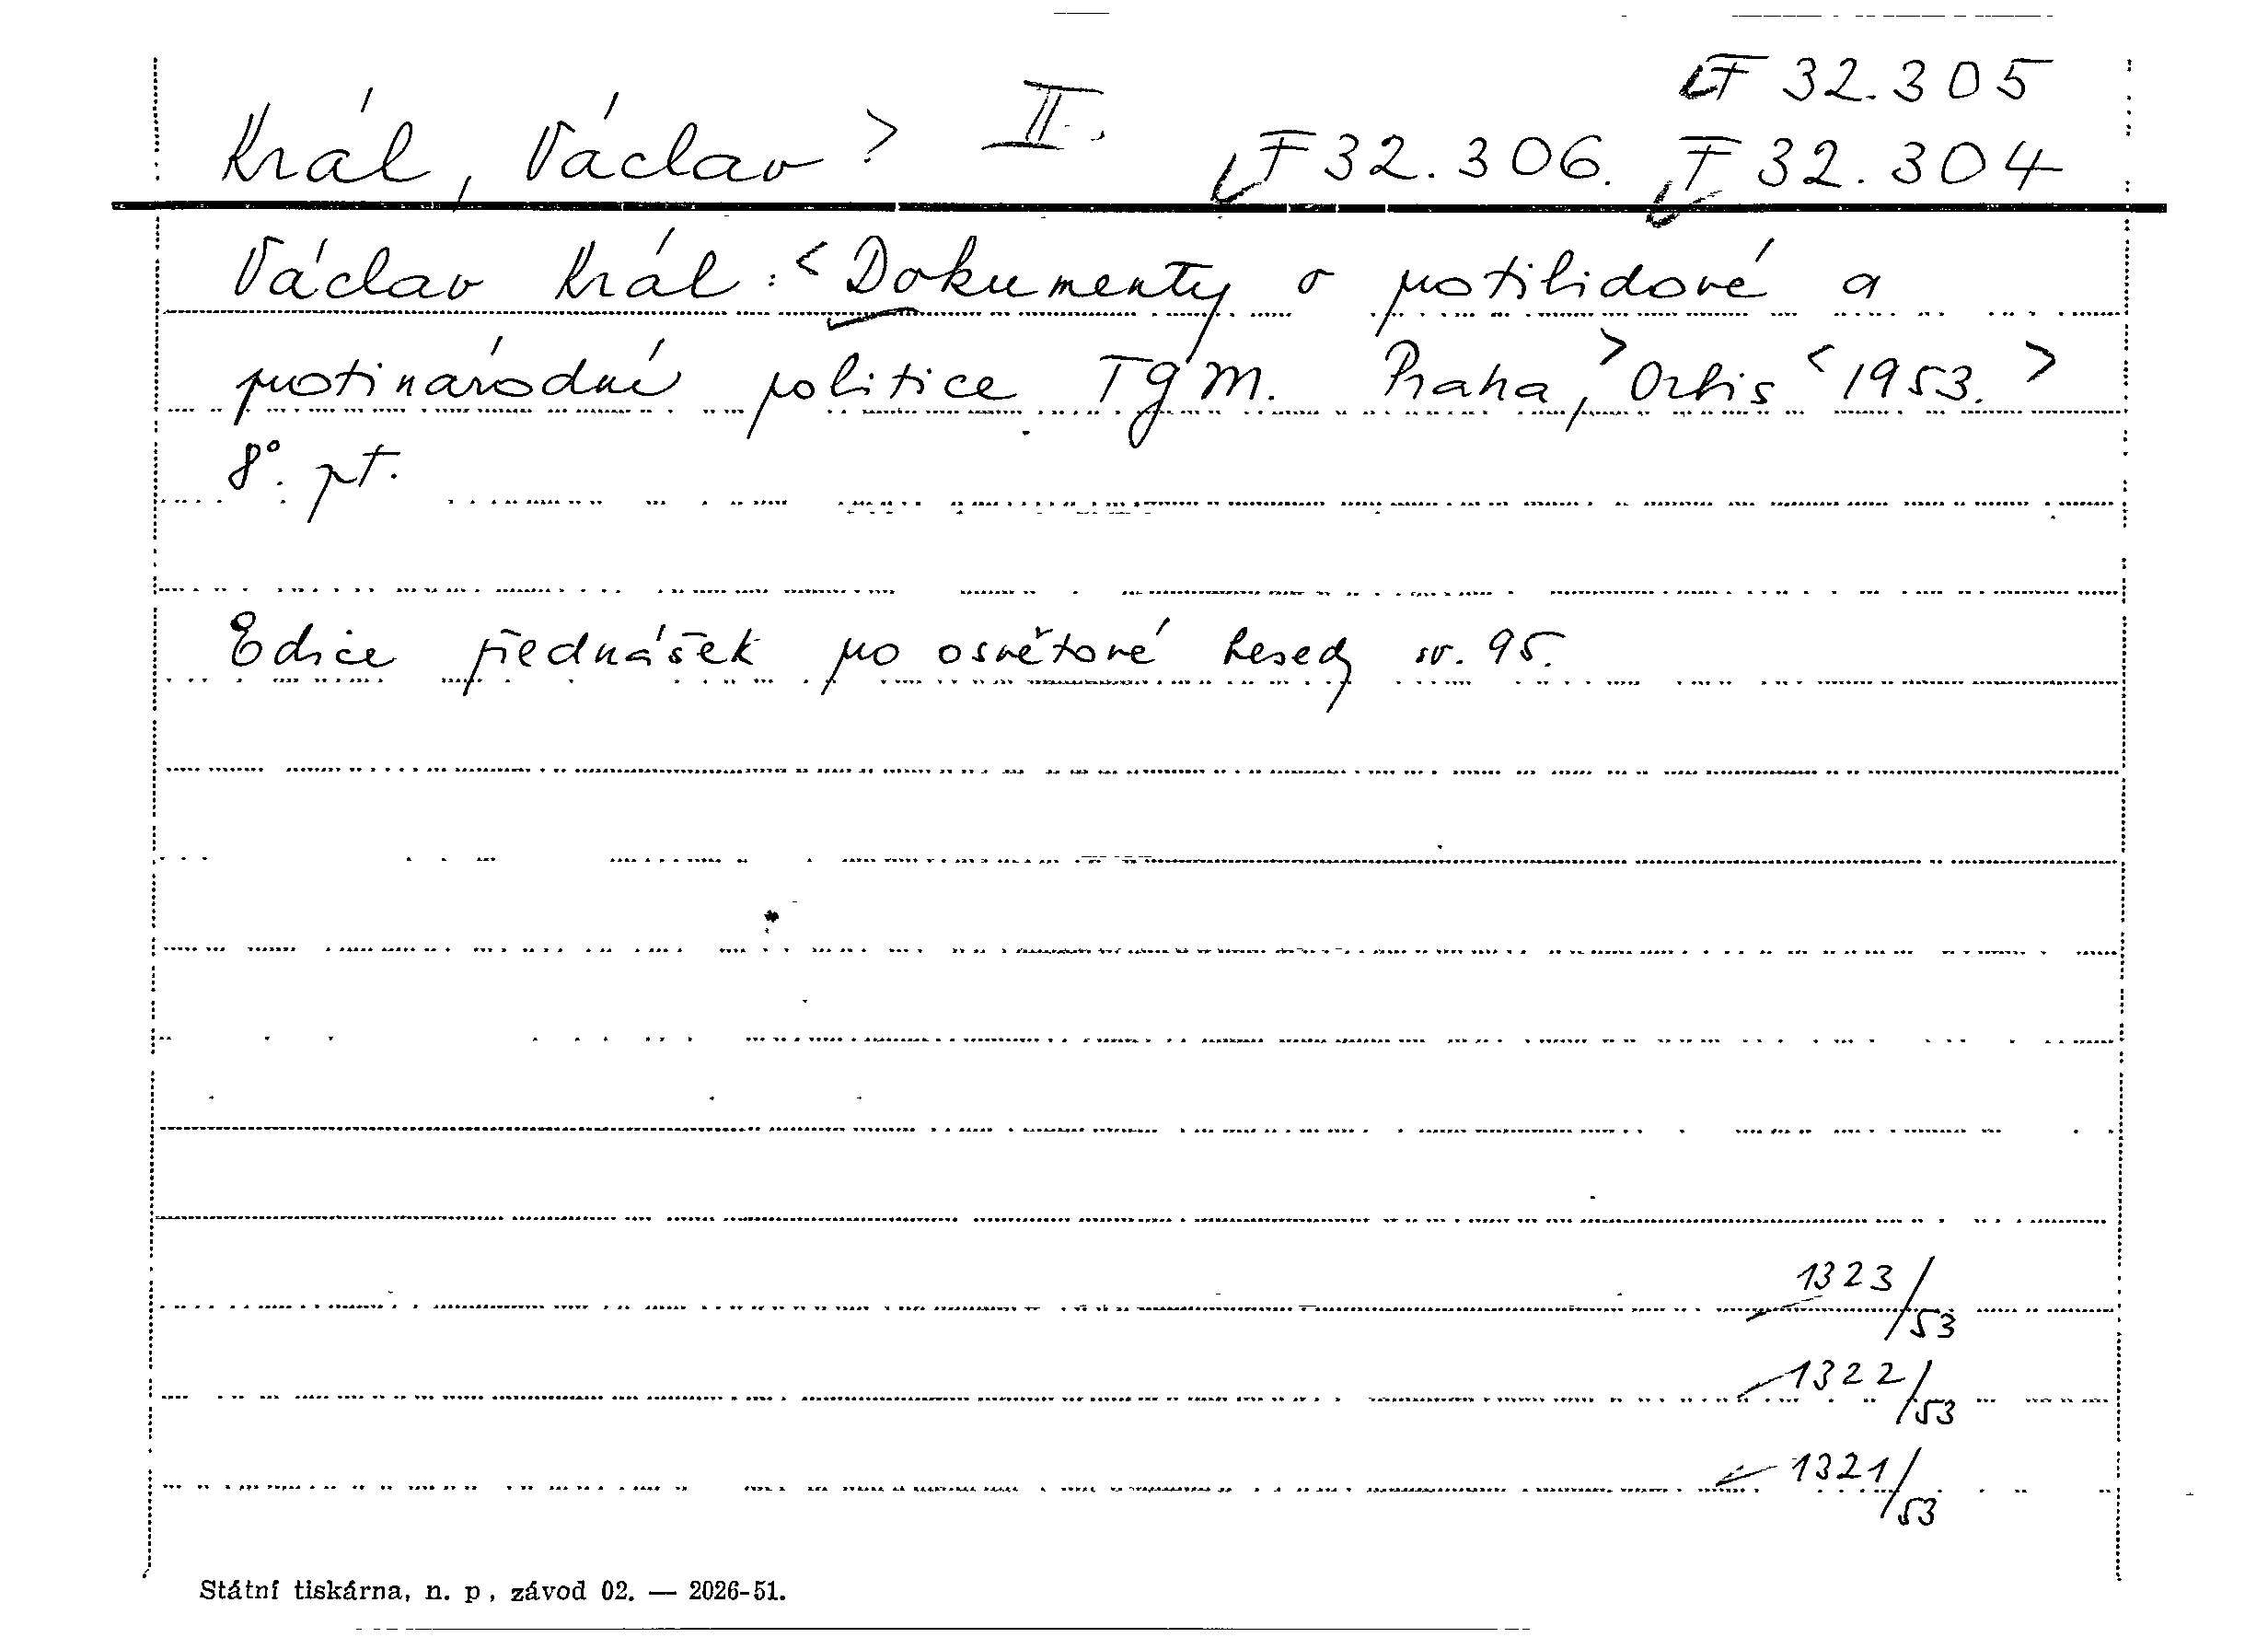 F 32.305
Král, Václav > II. F 32.306. F 32.304
Václav Král: < Dokumenty o protilidové a
protinárodní politice TGM. Praha, > Orbis < 1953. >
8°. pt.
Edice přednášek pro osvětové besedy sv. 95.
1323/53
1322/53
1321/53
Státní tiskárna, n. p., závod 02. — 2026-51.